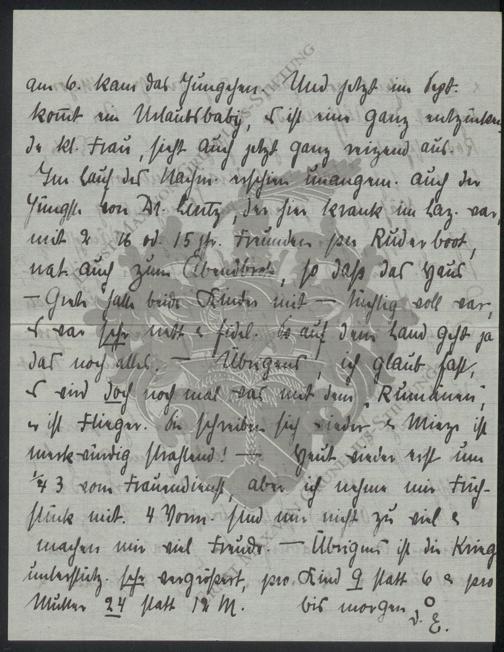 am 6. kam das Jungchen. Und jetzt im Sept.
kom̅t ein Urlaubsbaby, es ist eine ganz entzücken
de kl. Frau, sieht auch jetzt ganz reizend aus.
Im Lauf des Nachm. erschien unangem. auch der
Jüngste von Dr. der hier krank im Laz. war,
mit 2 16 od. 15 jr. Freunden per Ruderboot,
nat. auch zum Abendbrot, so daß das Haus
— Grete hatte beide Kinder mit — tüchtig voll war,
es war sehr nett & fidel. So auf dem Land geht ja
das noch alles. — Übrigens, ich glaub fast,
es wird doch noch mal was mit dem „Rumänen“,
er ist Flieger. Sie schreiben sich wieder & Mieze ist
merkwürdig strahlend! — Heut wieder erst um
¼ 3 vom Frauendienst, aber ich nehme mir Früh-
stück mit. 4 Vorm. sind mir nicht zu viel &
machen mir viel Freude. — Übrigens ist die Krieg
unterstütz. sehr vergrößert, pro Kind 9 statt 6 & pro
Mutter 24 statt 12 M. bis morgen
d. E.